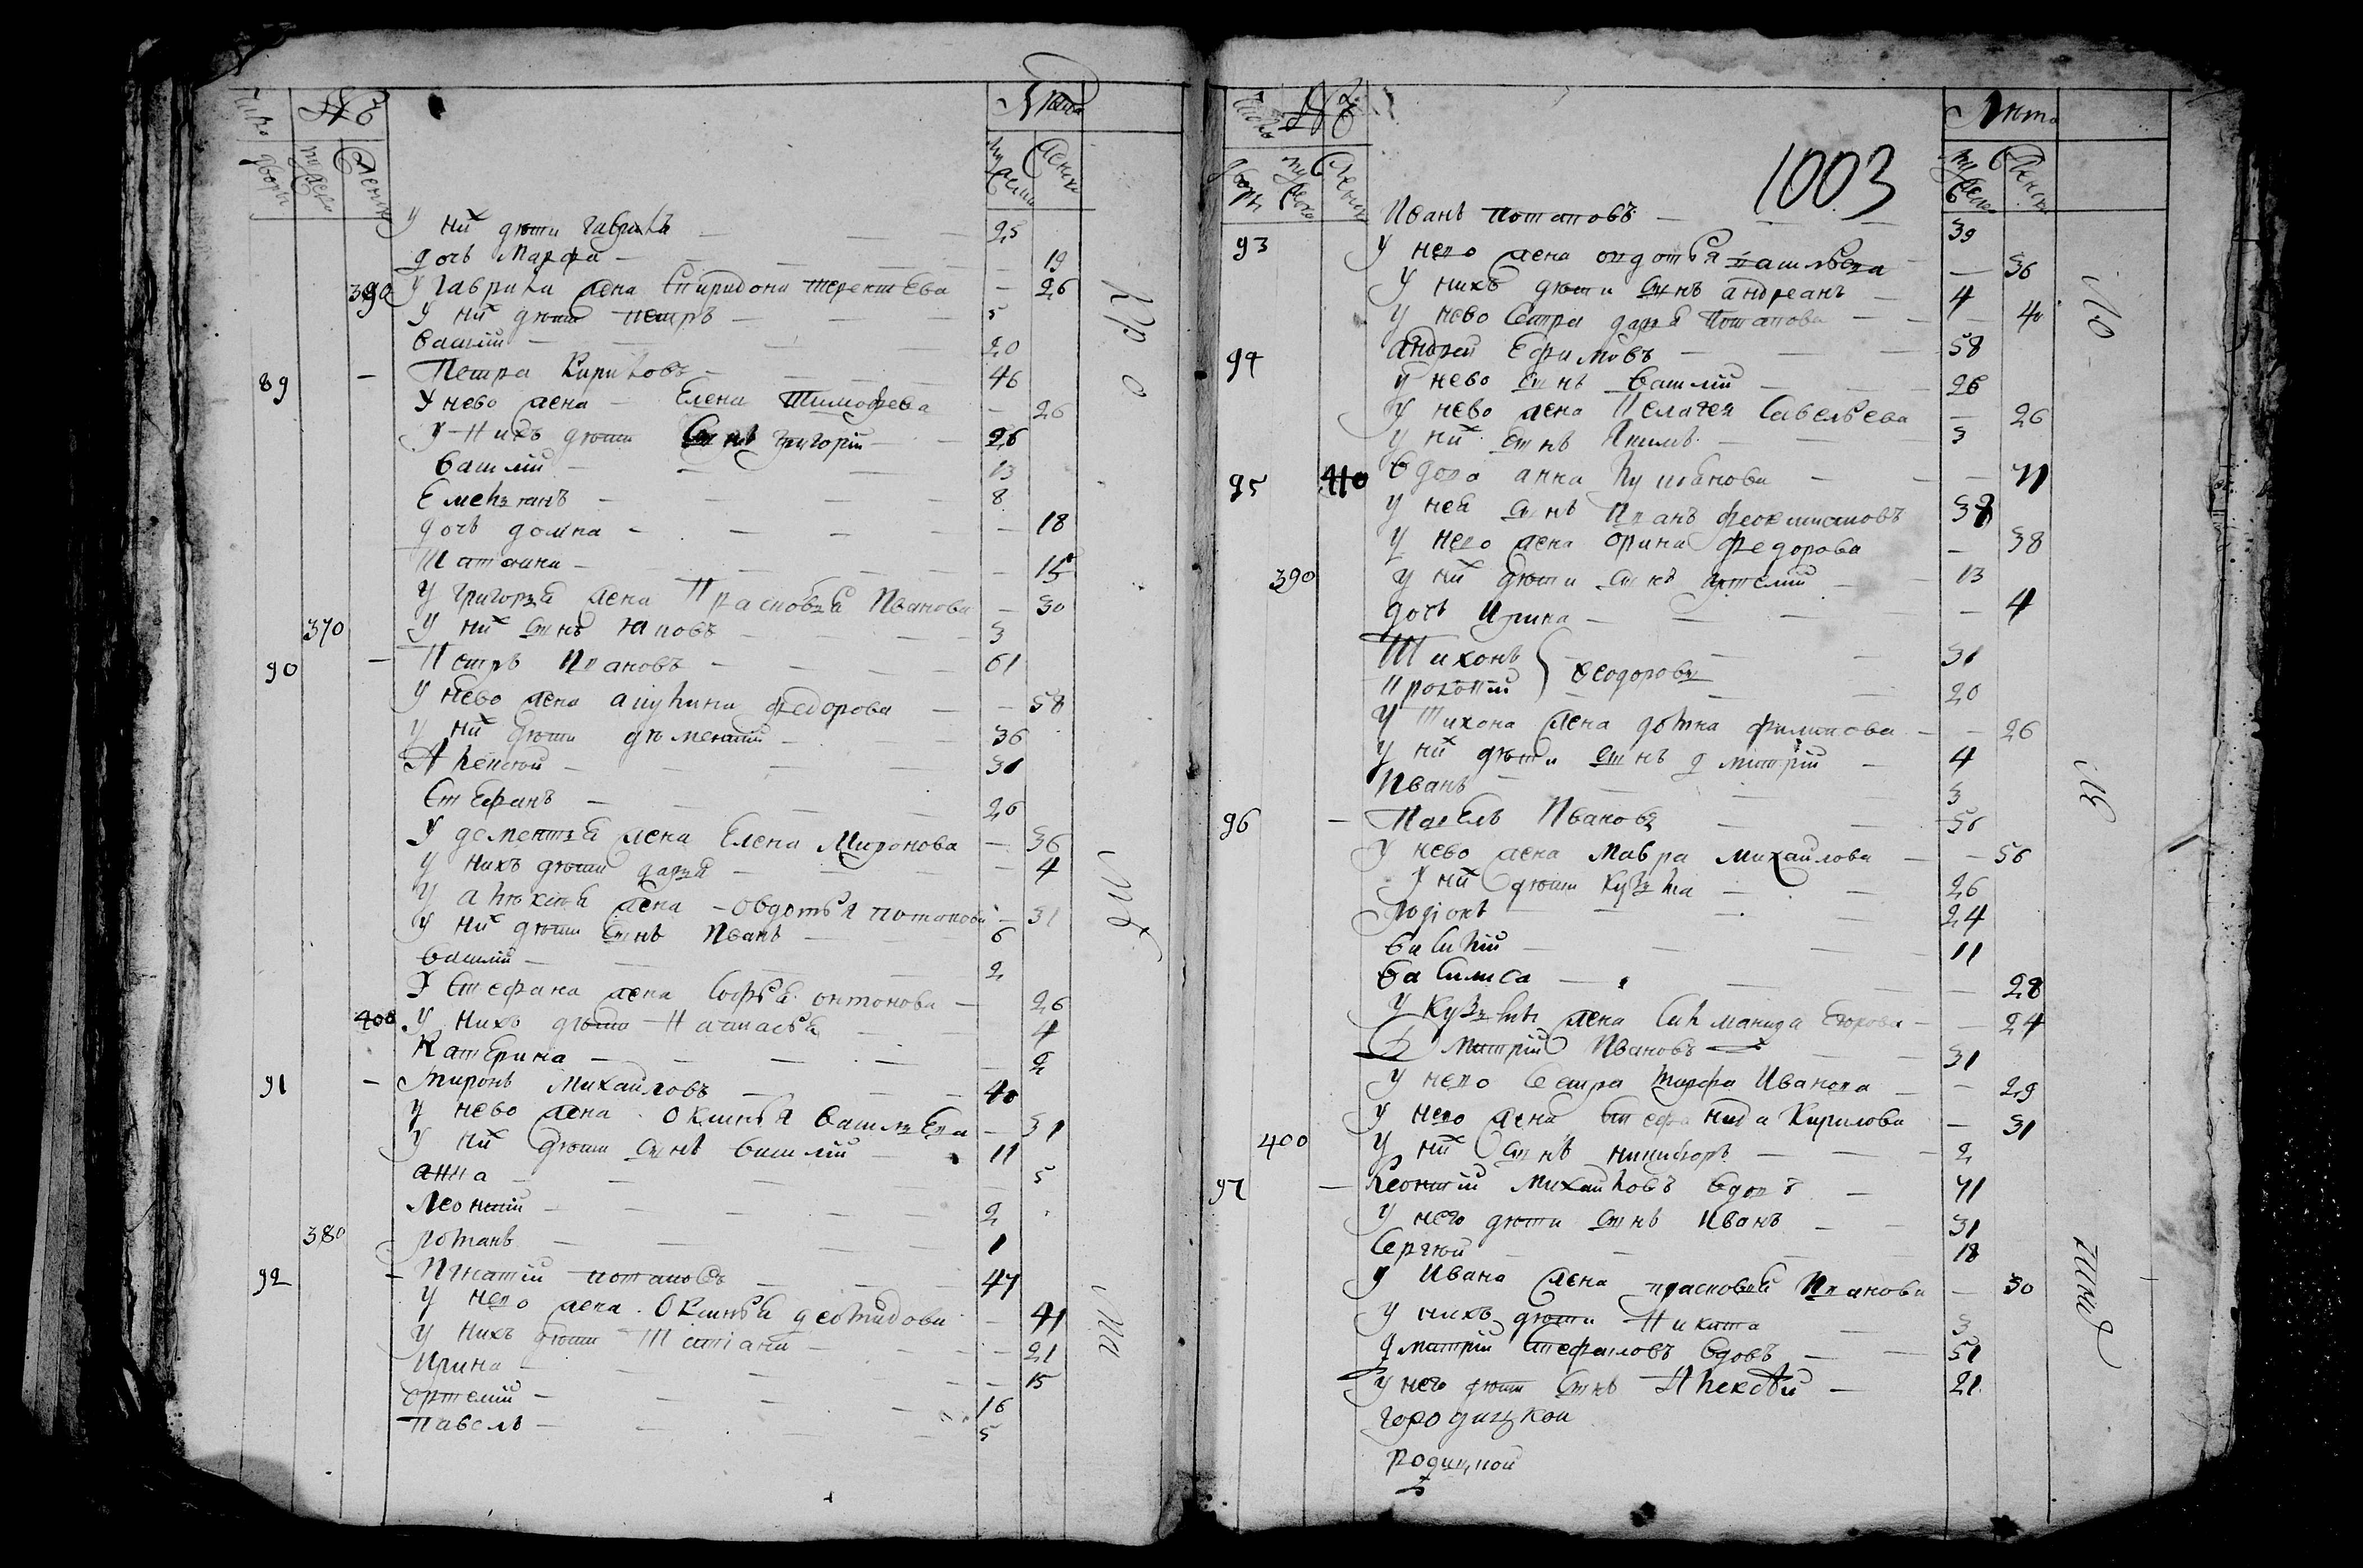 Число дворы
№
мужеска
женска
Лѣта
мужеска
женска
У них дѣти Гаврила — 25
дочь Марфа — 19
390 У Гаврила жена Спиридона Терентева — 26
У них дѣти Петръ — 5
Василій — 20
89 — Петра Кириловъ — 46
У нево жена Елена Тимофеева — 26
У Нихъ дѣти Сынъ Григорій — 26
Василій — 13
Емельянъ — 8
дочь домна — 18
Татьяна — 15
У Григорья жена Прасковья Иванова — 30
370 У них сынъ яковъ — 3
90 — Петръ Ивановъ — 61
У нево жена акулина федорова — 58
У них дѣти дѣментий — 36
Алексей — 31
Стефанъ — 20
У дементья жена Елена Миронова — 36
У нихъ дѣти дарья — 4
У алексея жена Овдотья потапова — 31
У них дѣти сынъ Иванъ — 6
Василій — 2
У Стефана жена Софья онтонова — 26
400 У нихъ дѣти Наталья — 4
Катерина — 2
91 — Миронъ Михаиловъ — 40
У нево жена Оксинья Васильева — 31
У них дѣти сынъ Василій — 11
анна — 5
Леонтий — 2
380 романъ — 1
92 — Игнатій потаповъ — 47
У нево жена Оксинья деомидова — 41
У нихъ дѣти Татіана — 21
Ирина — 15
Ортемій — 16
Павелъ — 5
Число дворы
№
мужеска
женска
Лѣта
мужеска
женска
1003
93 Иванъ потаповъ — 39
У нево жена овдотья васильева — 36
У нихъ дѣти сынъ андреанъ — 4
У нево Сестра дарья Потапова — 40
94 Андрей Ефимовъ — 58
У нево сынъ Василій — 26
У нево жена Пелагея Савельева — 26
У них сынъ Якимъ — 3
95 410 Вдова анна — 71
У неи сынъ Иванъ феоктистовъ — 38
У нево жена орина федорова — 38
390 У них дѣти сынъ артемій — 13
дочь Ирина — 4
Тихонъ
Прокопій } Феодоровы — 31
20
У Тихона жена домна филипова — 26
У них дѣти сынъ дмитрій — 4
Иванъ — 3
96 — Павелъ Ивановъ — 56
У нево жена Мавра Михаилова — 56
У них дѣти Кузьма — 26
Родіонъ — 24
Василій — 11
Василиса — 28
У Кузьмы жена Егорова — 24
Дмитрій Ивановъ — 31
У нево Сестра марфа Иванова — 29
У нево жена Стефанида Кирилова — 31
400 У них сынъ никифоръ — 2
97 — Леонтій Михаиловъ вдовъ — 71
У него дѣти сынъ Иванъ — 31
Сергѣй — 18
У Ивана жена прасковья Иванова — 30
У нихъ дѣти Никита — 3
дмитрій Стефановъ вдовъ — 51
У него дѣти сынъ Алексѣй — 21
городицкои